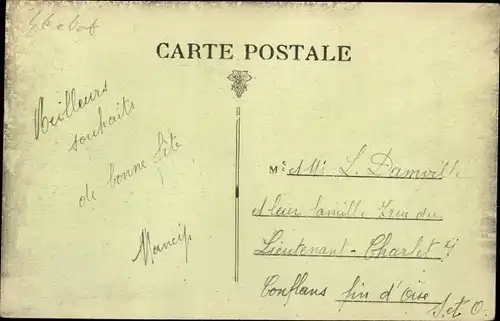 CARTE POSTALE
Meilleurs
souhaits
de bonne fête
!
M L. Damville
et leur famille 7 rue du
Lieutenant-Charlet
Conflans fin d'Oise
S. et O.